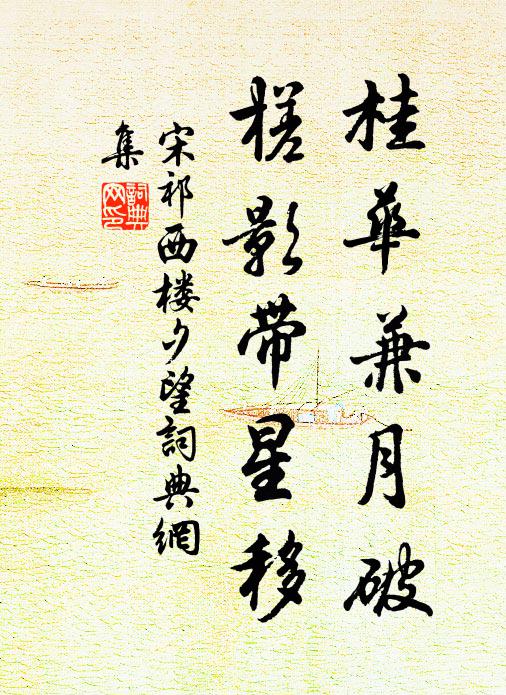 桂华兼月破
槎影带星移
宋祁西楼夕望詞典網
集
詞典
网印